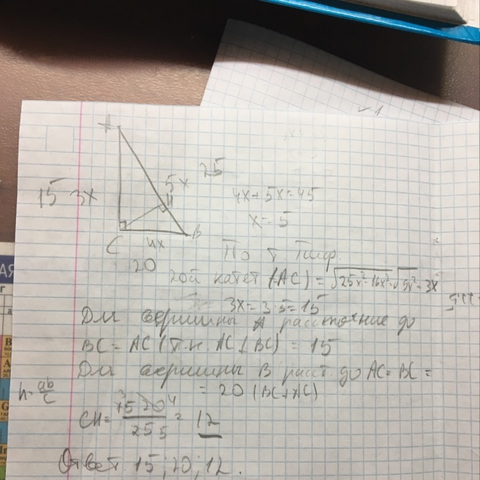 A
25
5x
15 3x
H
4x+5x=45
x=5
C 4x B
20
По т Пиф
2ой катет (AC) = √25x²-16x² = √9x² = 3x
3x=3·5=15
Для вершины A расстояние до
BC = AC (т.к AC⊥BC) = 15
Для вершины B расст. до AC = BC =
= 20 (BC⊥AC)
h=ab/c
CH= 15·20/25 = 12
3 4 5
Ответ 15; 20; 12.
АЯ